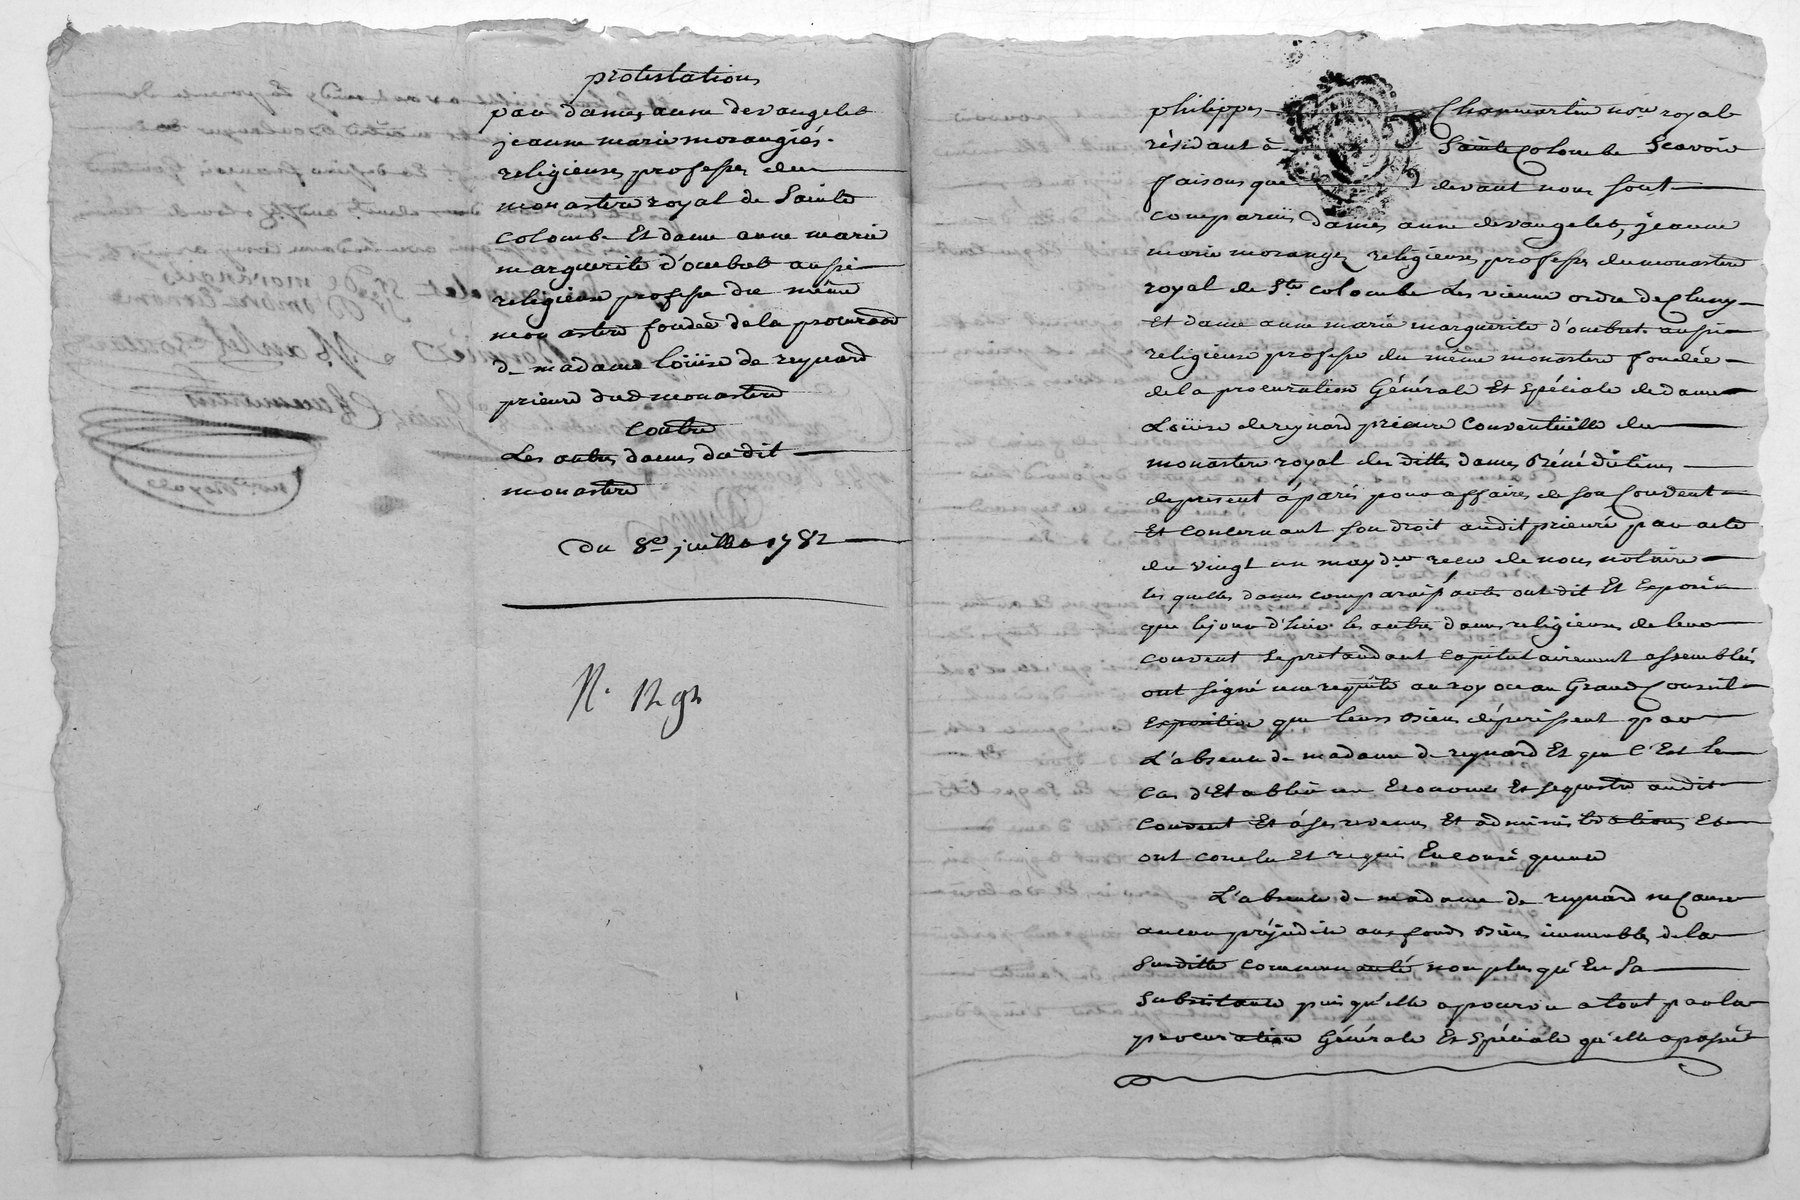 protestations
par dames anne devangelet
jeanne marie morangiés
religieuses professes du
monastere royal de Sainte
Colombe Et dame anne marie
marguerite d'ombret aussi
religieuse professe du même
monastere fondée de la procuraõn
de madame Loüise de reynard
prieure dud monastere
Contre
Les autres dames du dit
monastere
Du 8e juillet 1782
N. 12 92
philippes Chanmartin nore royal
résidant à Sainte Colombe Scavoir
faisons que devant nous sont
comparües dames anne devangelet, jeanne
marie moranges religieuses professes du monastere
royal de Ste Colombe Les vienne ordre de Cluny
Et dame anne marie marguerite d'ombret aussi
religieuse professe du même monastere fondée
de la procuration Générale Et Spéciale de dame
Loüise de reynard prieure Conventüelle du
monastere royal des dittes dames Bénédictines
de present à paris pour affaires de son Couvent
Et Concernant son droit audit prieuré par acte
du vingt un may der recu de nous notaire
les quelles dames comparoissantes ont dit Et Exposé
que le jour d'hier les autres dames religieuses de leur
Couvent se pretandant Capitulairement assemblées
ont signé une requête au roy ou au Grand Conseil
Expositive que leurs Biens dépérissent par
L'absence de madame de reynard Et que C'Est le
Cas d'Etablir un Econome Et sequestre audit
Couvent Et à ses revenus Et administrations Et
ont Conclu Et requis En conséquence
L'absence de madame de reynard ne Cause
aucun préjudice aux fonds Biens immeubles de la
Susditte Communauté non plus qu'En Sa
Subsistance puis qu'elle a pourvu a tout par la
procuration Générale Et Spéciale qu'elle a passée